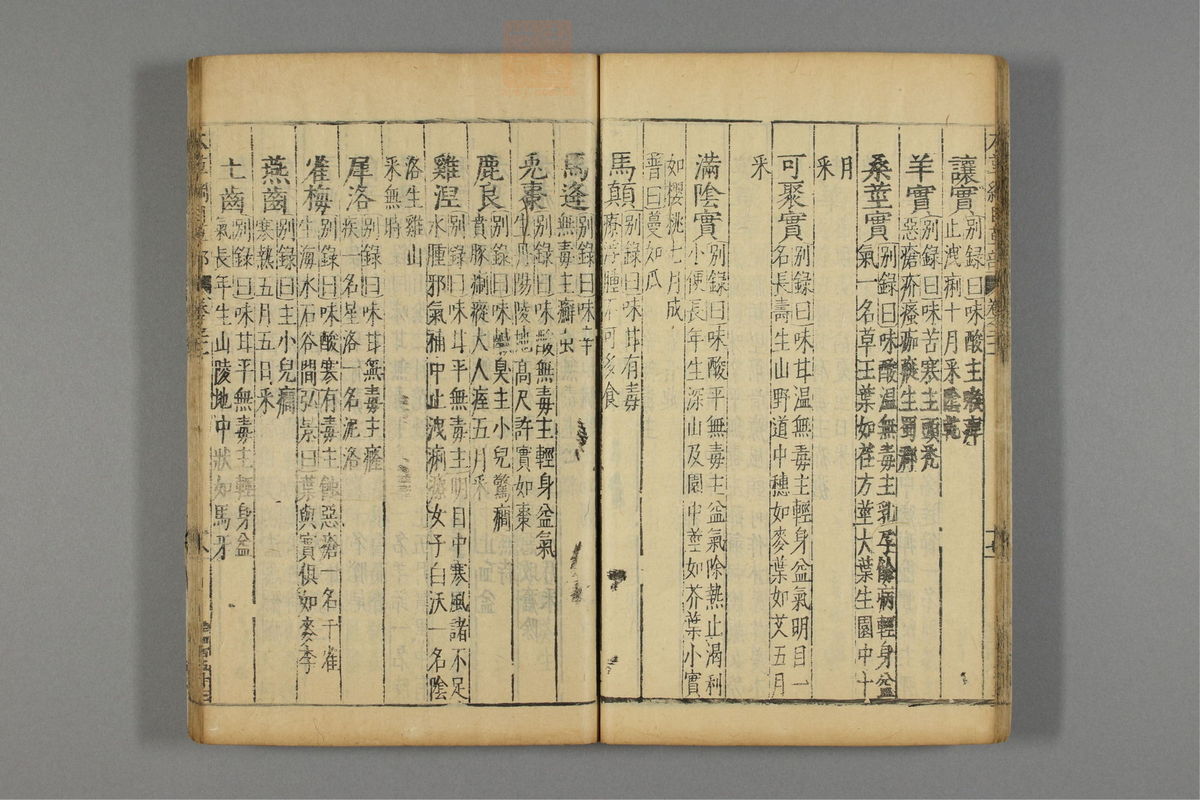 讓實 別録曰味酸主喉痹
止洩痢十月采陰乾
羊實 別録曰味苦寒主頭禿
惡瘡疥瘙痂癬生蜀郡
桑莖實 別録曰味酸温無毒主乳孕餘病輕身益
氣一名草王葉如荏方莖大葉生園中十
月
采
可聚實 別録曰味甘温無毒主輕身益氣明目一
名長壽生山野道中穗如麥葉如艾五月
采
滿陰實 別録曰味酸平無毒主益氣除熱止渴利
小便長年生深山及園中莖如芥葉小實
如櫻桃七月成
普曰蔓如瓜
馬顛 別録曰味甘有毒
療浮腫不可多食
馬逢 別録曰味辛
無毒主癬虫
兎棗 別録曰味酸無毒主輕身益氣
生丹陽陵地高尺許實如棗
鹿良 別録曰味鹹臭主小兒驚癇
賁豚瘛瘲大人痓五月采
雞涅 別録曰味甘平無毒主明目中寒風諸不足
水腫邪氣補中止洩痢療女子白沃一名陰
洛生雞山
采無時
犀洛 別録曰味甘無毒主癃
疾一名星洛一名泥洛
雀梅 別録曰味酸寒有毒主蝕惡瘡一名千雀
生海水石谷間弘景曰葉與實俱如麥李
燕齒 別録曰主小兒癇
寒熱五月五日采
土齒 別録曰味甘平無毒主輕身益
氣長年生山陵地中狀如馬牙